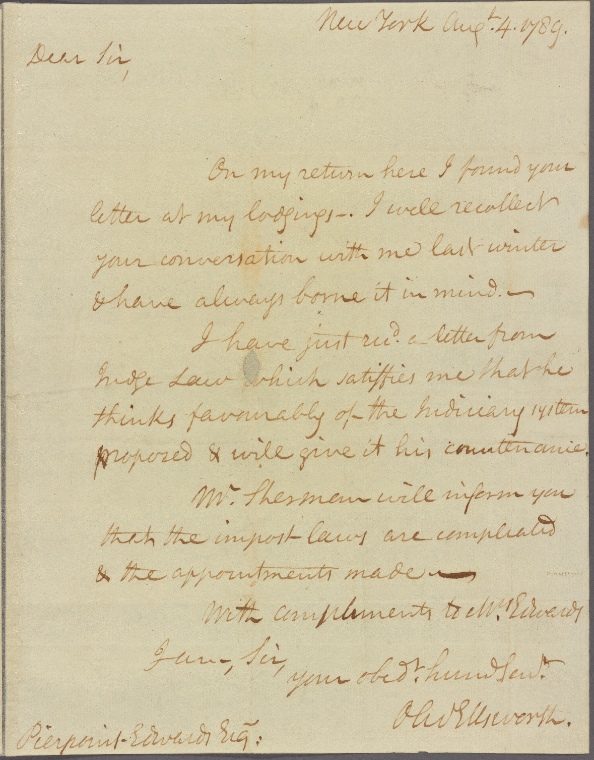 New York Augt. 4. 1789.
Dear Sir,
On my return here I found your
letter at my lodgings–. I well recollect
your conversation with me last winter
& have always borne it in mind.—
I have just recd. a letter from
Judge Law which satisfies me that he
thinks favourably of the Judiciary system
proposed & will give it his countenance.
Mr. Sherman will inform you
that the impost laws are compleated
& the appointments made—
With compliments to Mrs. Edwards
I am, Sir,
your obedt. humb Servt.
Olivr Ellsworth.
Pierpoint Edwards Esqr: